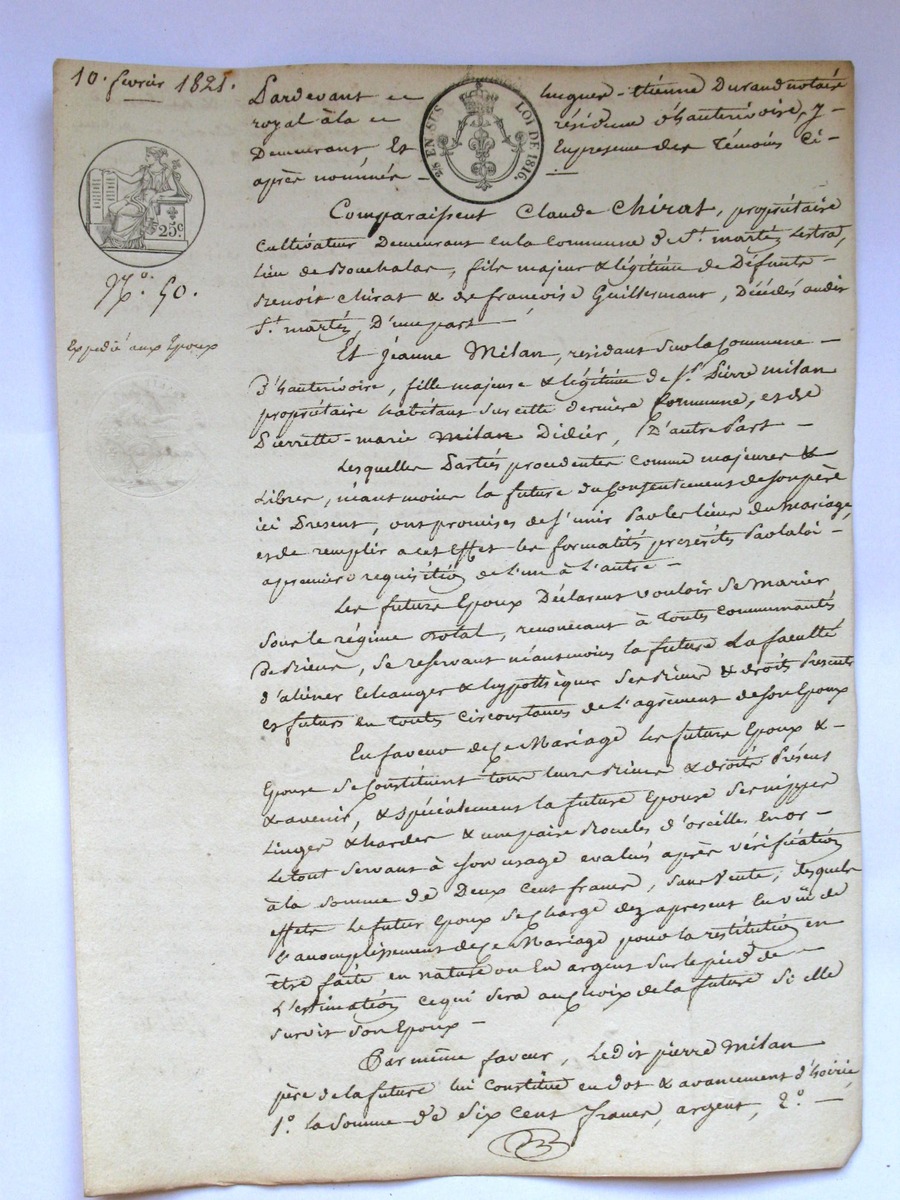 10. fevrier 1821.
25 EN SUS
LOI DE 1816.
25c
N.o 50.
Expedié aux Epoux
Pardevant me Jacques-Etienne Durand notaire
royal à la résidence d'hauterivoire, y
Demeurant Et En presence des Témoins Ci-
après nommés –
Comparaissent Claude Chirat, propriétaire
Cultivateur Demeurant en la Commune de St. martin Lestra,
Lieu de , fils majeur & légitime de Défunts
Benoit Chirat & de francoise Guillermant, Décédés audit
St. martin, D'une part
Et Jeanne Milan, residant sur la Commune –
D'hauterivoire, fille majeure & légitime de Sr. Pierre milan
propriétaire habitant sur cette derniere Commune, et de
Pierrette-marie Didier, D'autre Part –
Lesquelles Parties procedentes Comme majeures &
Libres, néantmoins la future du Consentement de son père
ici Present, ont promises de s'unir Par les liens du mariage,
et de remplir a cet Effet les formalités prescrites Par la loi –
a premiere requisition de l'un à l'autre –
Les futurs Epoux Déclarent vouloir se Marier
Sous le régime Dotal, renoncant à toutes Communautés
De Biens, se reservant néantmoins la future La faculté
d'aliéner Echanger & hypothéquer ses Biens & droits Presents
et futurs en toutes Circonstances de l'agrément de son Epoux
En faveur de ce Mariage les futurs Epoux &
Epouse se Constituent tous leurs Biens & droits Présens
& avenir, & spécialement la future Epouse ses nippes
Linges & hardes & une paire Boucles d'oreilles En or –
Le tout servant à son usage evalués après vérification
à la somme de Deux Cent francs, sans vente, desquels
effets le futur Epoux se Charge dez apresent En vüe de
l'accomplissement de ce Mariage pour la restitution en
être faite en nature ou En argent sur le pied de –
L'estimation ce qui sera au Choix de la future si elle
survit son Epoux –
Par même faveur, Ledit pierre Milan
père de la future lui Constitue en dot & avancement d'hoirie
1.o la somme de six cent francs, argent, 2.o –